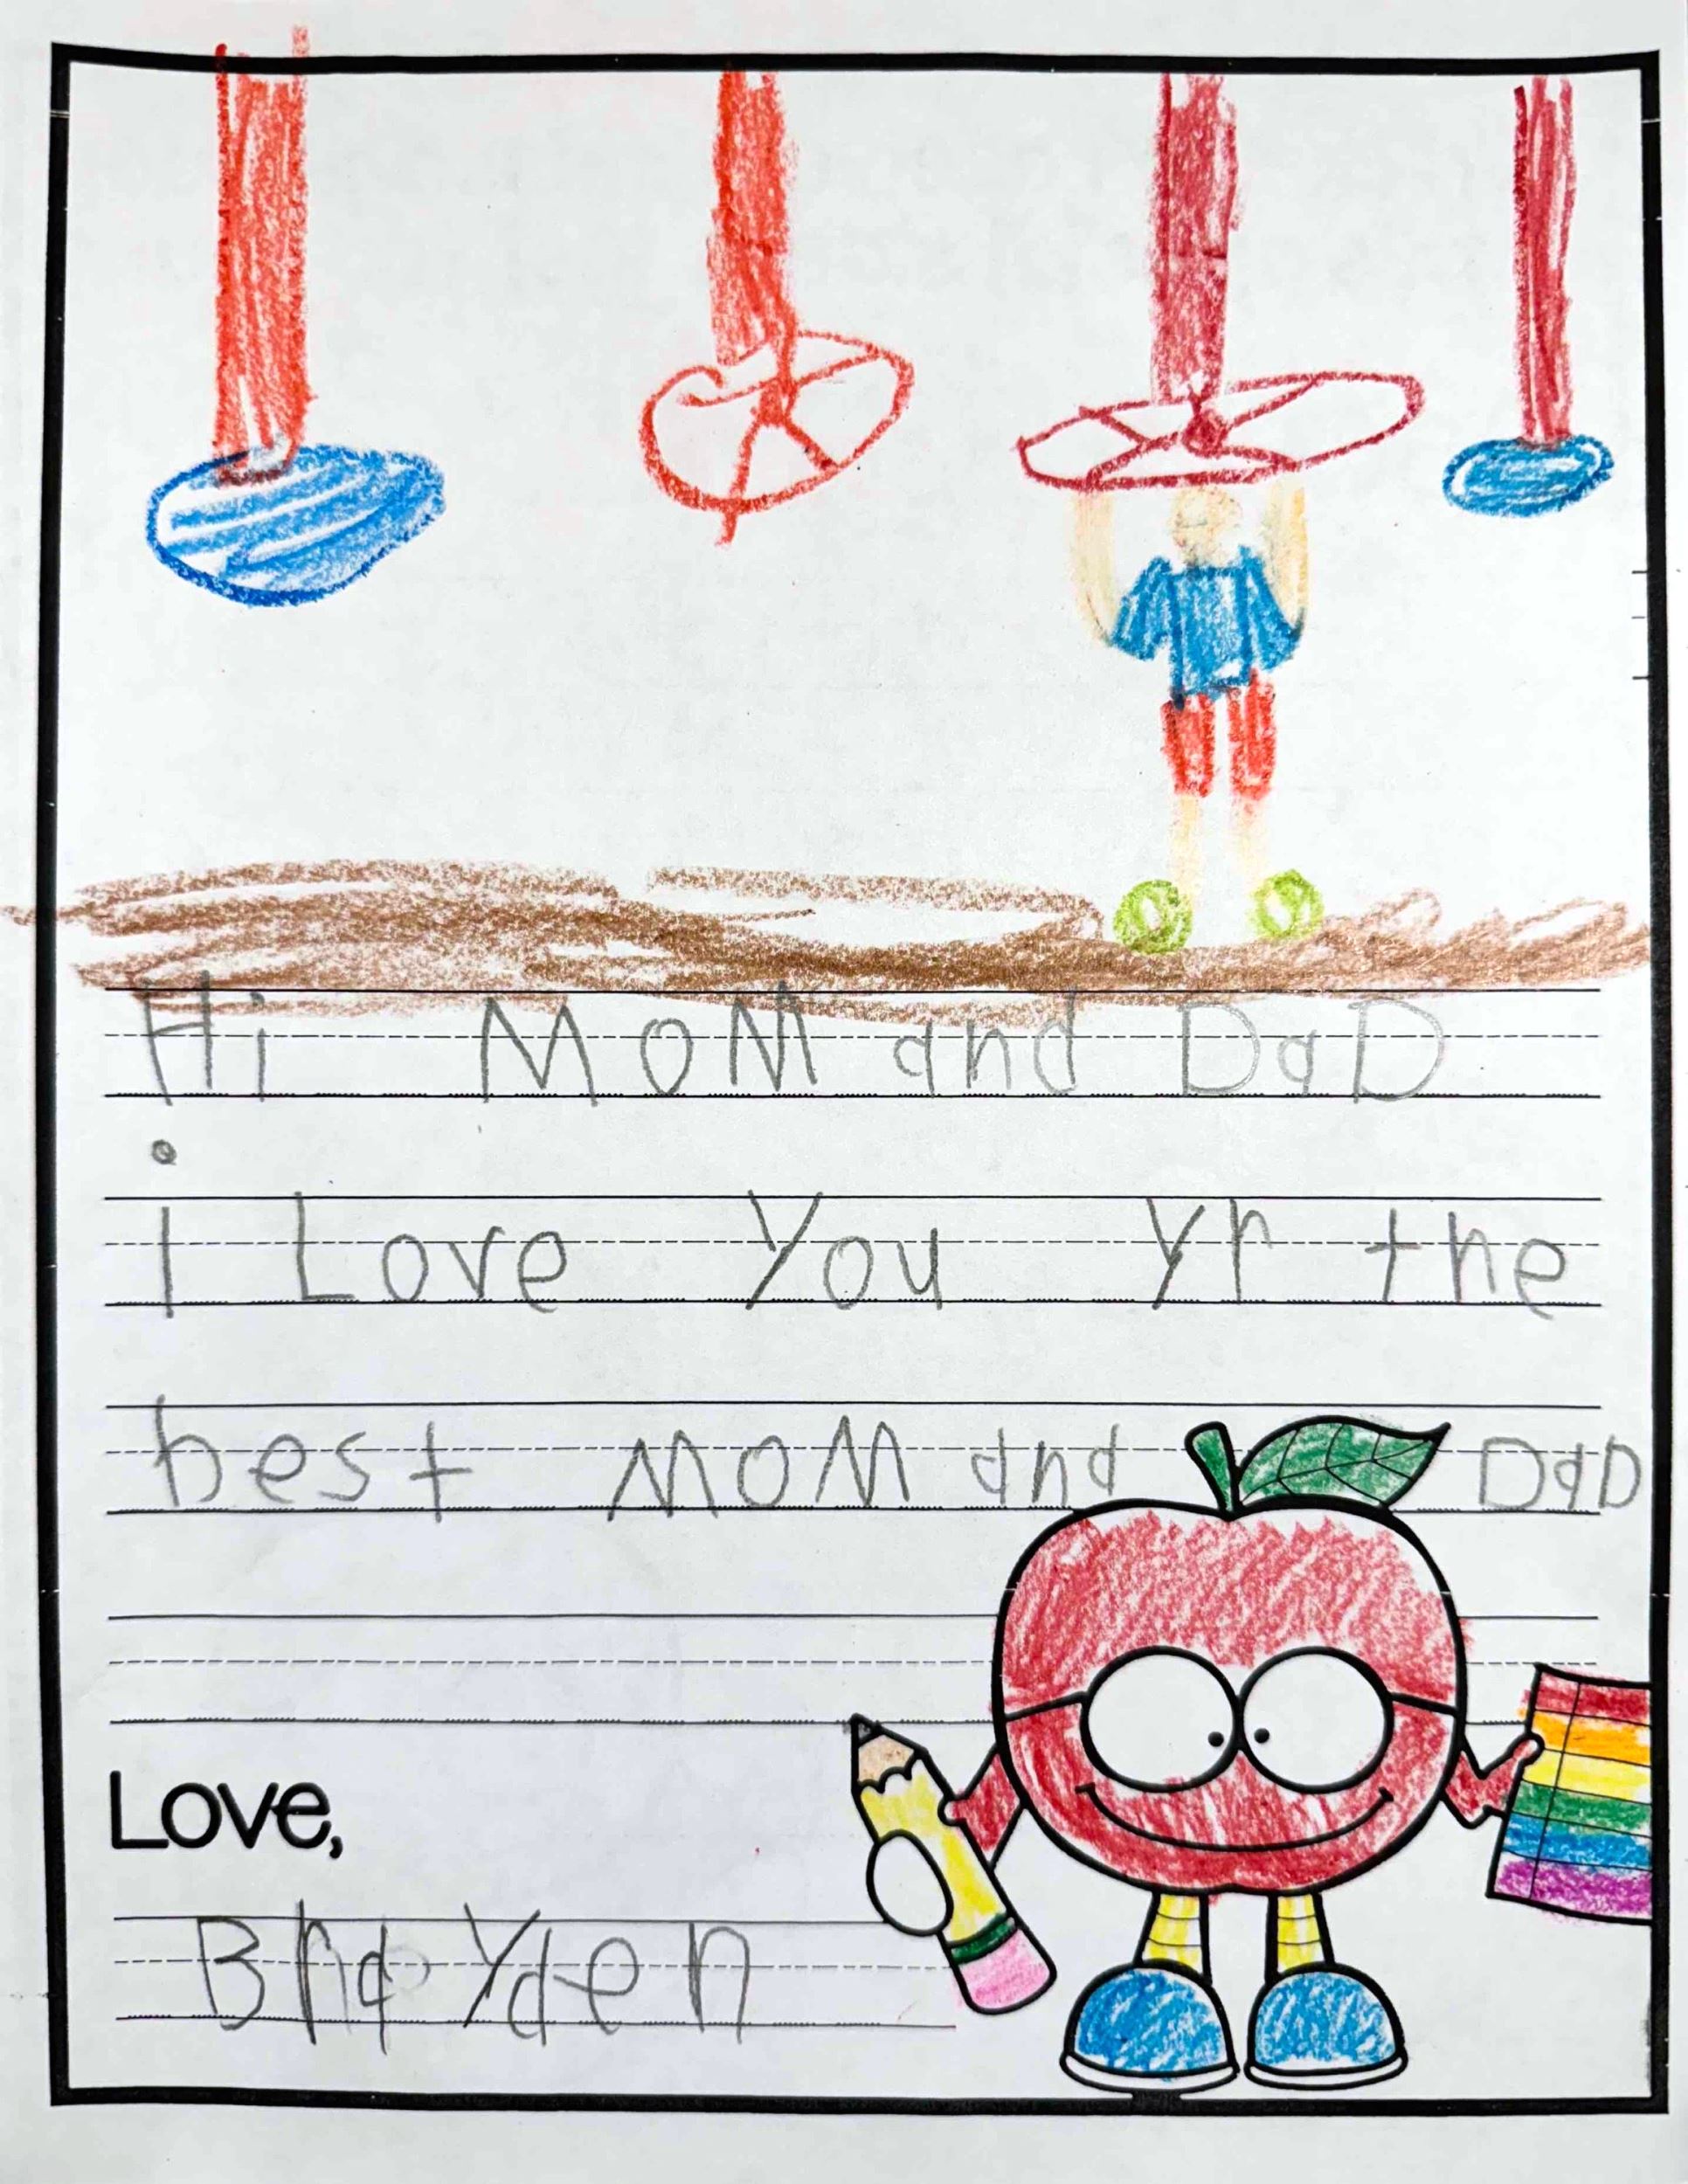 Hi MoM and DaD
i Love You yr the
best MoM and DaD
Love,
Brayden